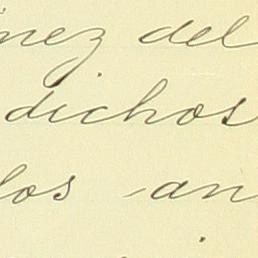 nez del
dichos
los an